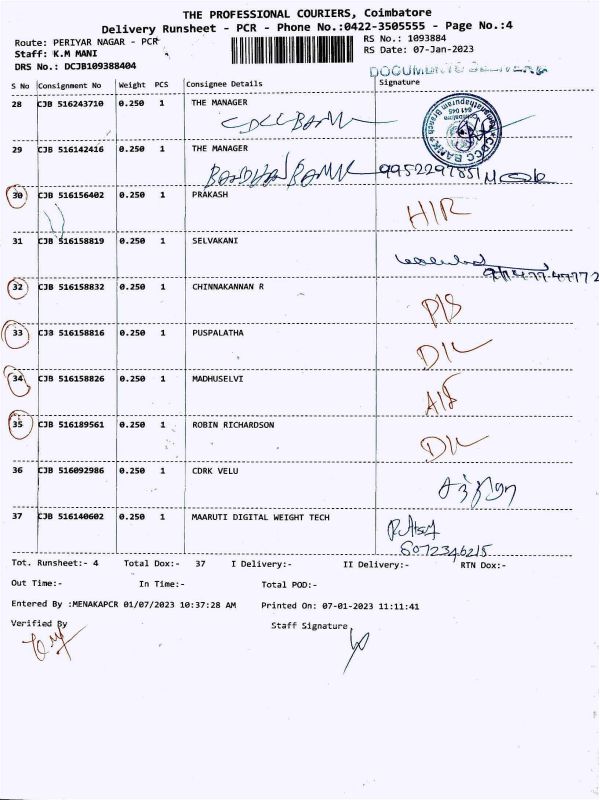 THE PROFESSIONAL COURIERS, Coimbatore
Delivery Runsheet - PCR - Phone No.:0422-3505555 - Page No.:4
Route: PERIYAR NAGAR - PCR
RS No.: 1093884
Staff: K.M MANI
RS Date: 07-Jan-2023
DRS No.: DCJB109388404
S No Consignment No Weight PCS Consignee Details Signature
28 CJB 516243710 0.250 1 THE MANAGER
CDCC BANK
29 CJB 516142416 0.250 1 THE MANAGER
BANDHAN BANK
30 CJB 516156402 0.250 1 PRAKASH
31 CJB 516158819 0.250 1 SELVAKANI
32 CJB 516158832 0.250 1 CHINNAKANNAN R
33 CJB 516158816 0.250 1 PUSPALATHA
D/L
34 CJB 516158826 0.250 1 MADHUSELVI
35 CJB 516189561 0.250 1 ROBIN RICHARDSON
D/L
36 CJB 516092986 0.250 1 CDRK VELU
37 CJB 516140602 0.250 1 MAARUTI DIGITAL WEIGHT TECH
Tot. Runsheet:- 4 Total Dox:- 37 I Delivery:- II Delivery:- RTN Dox:-
Out Time:- In Time:- Total POD:-
Entered By :MENAKAPCR 01/07/2023 10:37:28 AM Printed On: 07-01-2023 11:11:41
Verified By Staff Signature